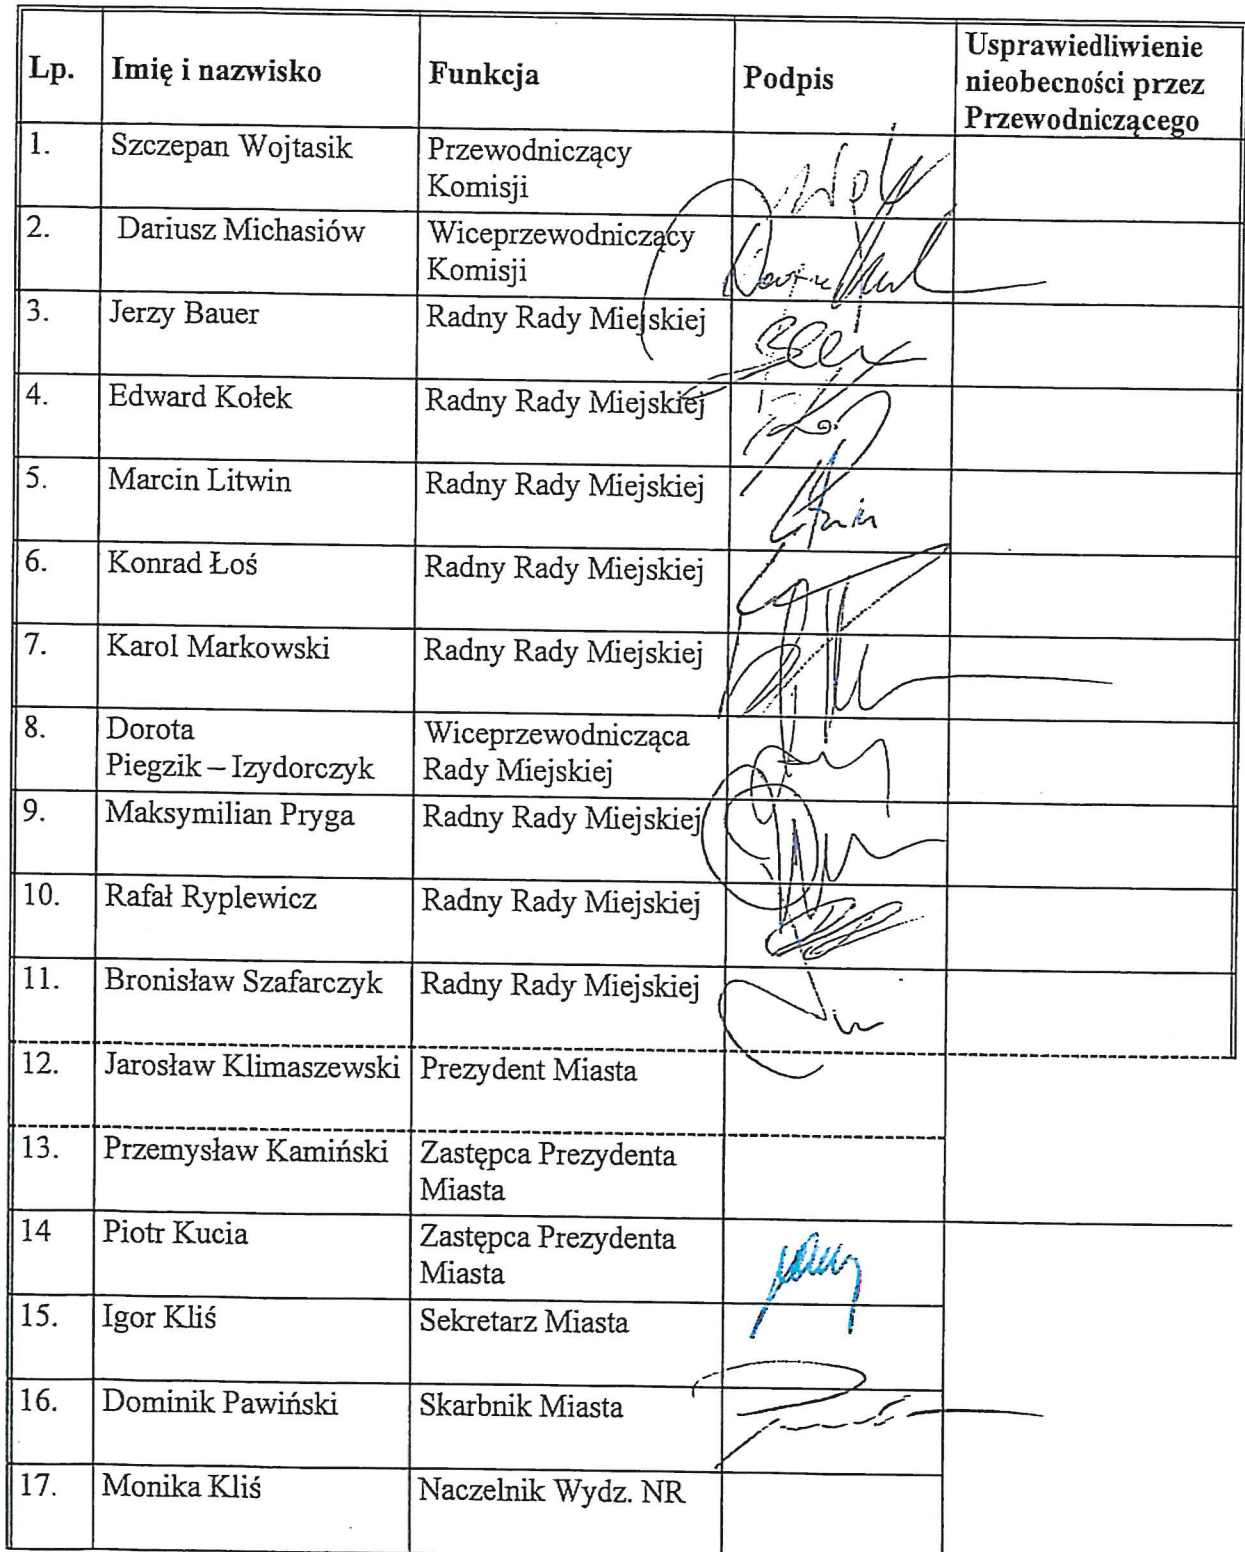 Lp.
Imię i nazwisko
Funkcja
Podpis
Usprawiedliwienie
nieobecności przez
Przewodniczącego
1.
Szczepan Wojtasik
Przewodniczący
Komisji
2.
Dariusz Michasiów
Wiceprzewodniczący
Komisji
3.
Jerzy Bauer
Radny Rady Miejskiej
4.
Edward Kołek
Radny Rady Miejskiej
5.
Marcin Litwin
Radny Rady Miejskiej
6.
Konrad Łoś
Radny Rady Miejskiej
7.
Karol Markowski
Radny Rady Miejskiej
8.
Dorota
Piegzik – Izydorczyk
Wiceprzewodnicząca
Rady Miejskiej
9.
Maksymilian Pryga
Radny Rady Miejskiej
10.
Rafał Ryplewicz
Radny Rady Miejskiej
11.
Bronisław Szafarczyk
Radny Rady Miejskiej
12.
Jarosław Klimaszewski
Prezydent Miasta
13.
Przemysław Kamiński
Zastępca Prezydenta
Miasta
14
Piotr Kucia
Zastępca Prezydenta
Miasta
15.
Igor Kliś
Sekretarz Miasta
16.
Dominik Pawiński
Skarbnik Miasta
17.
Monika Kliś
Naczelnik Wydz. NR